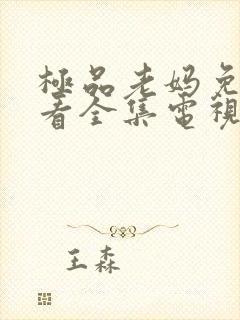 極品老妈免
看全集電視
王森